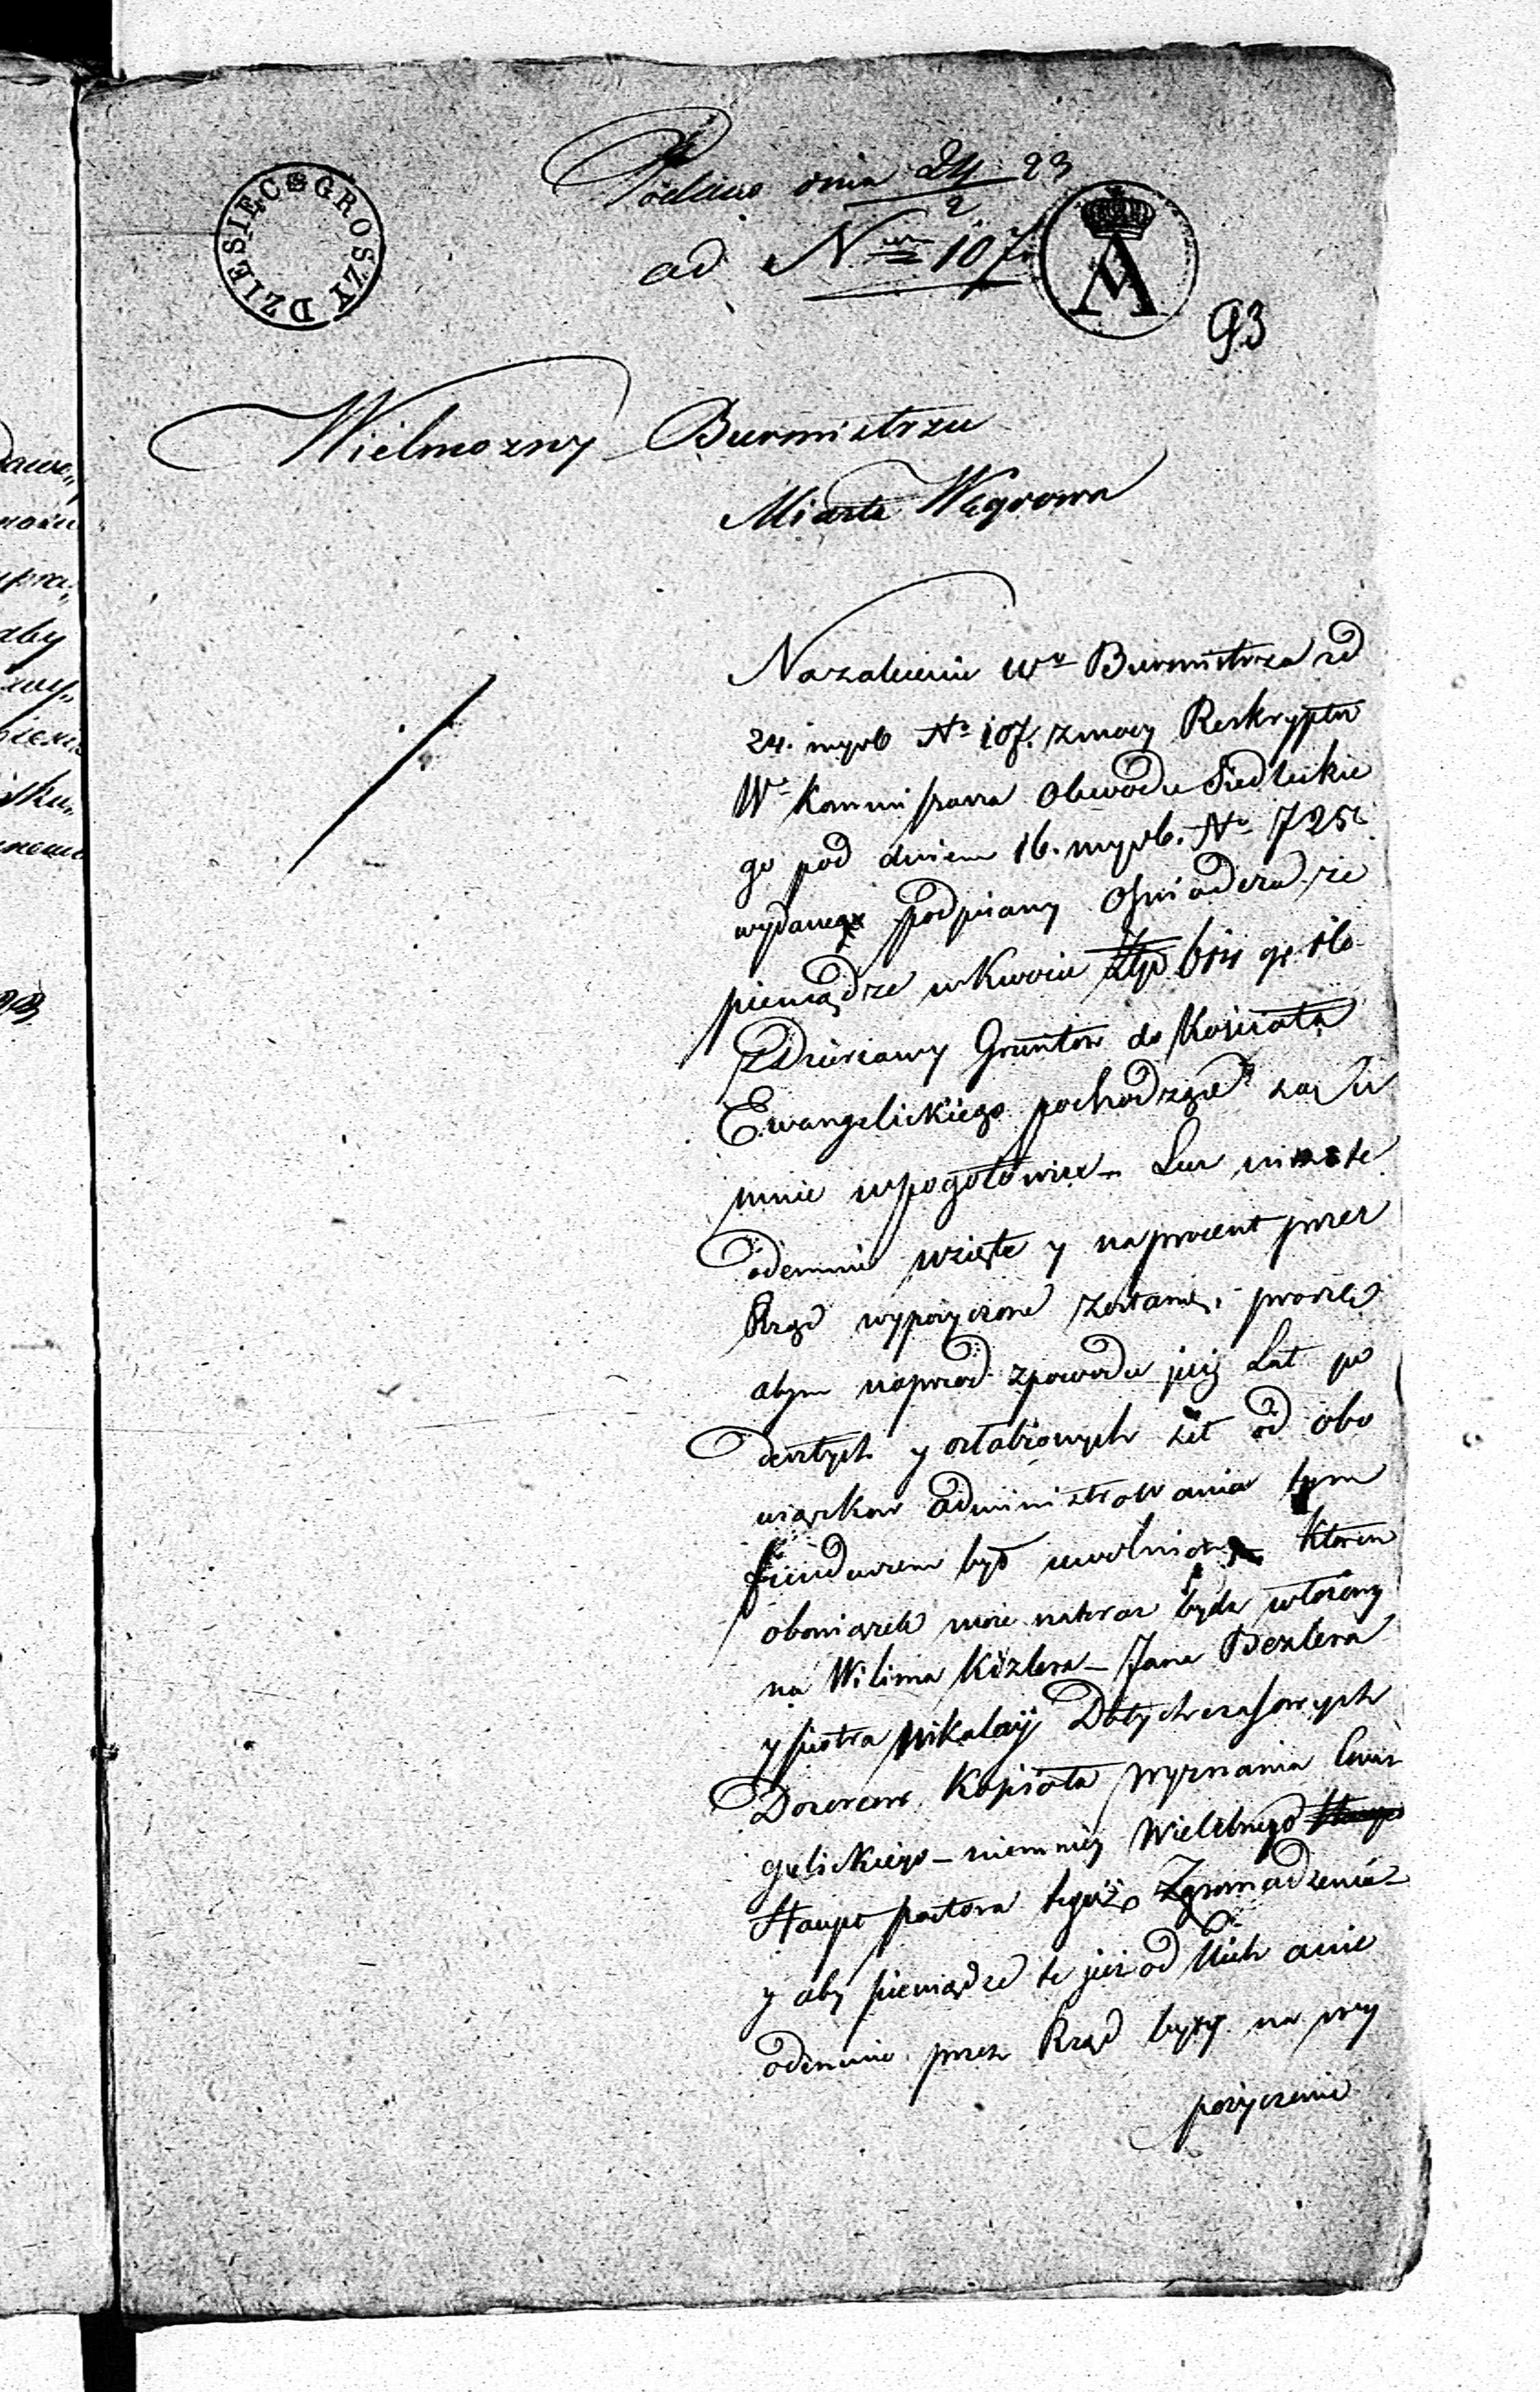 Podano dnia 24/2 23
ad Nrm 107.
DZIESIĘC GROSZY
A
93
Wielmozny Burmistrzu
Miasta Węgrowa
Nazalecenie Wo Burmistrza ed
24. myrb No 107. zmocy Reskryptu
Wo Kommissarza Obwodu Siedleckie
go pod dniem 16. myrb. No 725
wydanego podpisany Oswiadcza że
pieniądze wKwocie Złp 614 gr
zDzierżawy Gruntow do Kościoła
Ewangelickiego pochodzące są u
mnie wpogotowiu – Lecz te
odemnie wzięte y naprocent przez
Rząd wypożyczone zostaną, proszę
abym naprzod zpowodu już Lat po
deszłych y osłabionych sił od obo
wiązkow administrowania tym
funduszem był uwolniony – ktoren
obowiązek może nateraz bydz włożony
na Wilima Kizlera – Jana Bezlera
y Piotra Mikolay Dotychczasowych
Dozorcow Kosciola Wyznania Ewan
gelickiego – niemniey Wielebnego
Haupt pastora tegoż Zgromadzenia –
y aby pieniądze te już od Nich a nie
odemnie przez Rząd były na wy
pożyczenie